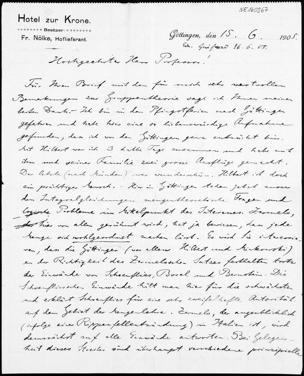 NE140267
Hotel zur Krone.
Besitzer:
Fr. Nölke, Hoflieferant.
Göttingen, den 15. 6. 1905
Hochgeehrter Herr Professor!
Für Ihren Brief mit den für mich sehr wertvollen
Bemerkungen zur Gruppentheorie sage ich Ihnen meinen
besten Dank. Ich bin in den Pfingstferien nach Göttingen
gefahren und habe hier eine so liebenswürdige Aufnahme
gefunden, daß ich von der Göttingen ganz entzückt bin.
Mit Hilbert war ich 3 halbe Tage zusammen und habe mit
ihm und seiner Familie zwei grosse Ausflüge gemacht.
Die letzte (nach Münden) war wunderschön. Hilbert ist doch
ein prächtiger Mensch. Hier in Göttingen stehen jetzt ausser
den Integralgleichungen mengentheoretische Fragen und
logische Probleme im Mittelpunkt des Interesses. Zermelo,
der hier vor allem genannt wird, hat ja bewiesen, dass jede
Menge sich wohlgeordnet denken lässt. Es wird Sie interessieren,
dass die Göttinger (vor allem Hilbert und Minkowski) an
der Richtigkeit des Zermeloschen Satzes festhalten trotz
der Einwände von Schoenflies, Borel und Bernstein. Die
Schoenfliesschen Einwände hält man hier für die schwächsten
und erklärt Schoenflies für eine sehr zweifelhafte Autorität
auf dem Gebiet der Mengenlehre. Zermelo, der augenblicklich
(infolge einer Rippenfellentzündung) in Italien ist, wird
demnächst auf alle Einwände antworten. Bei Gelegen-
heit dieses Streites sind überhaupt verschiedene prinzipielle